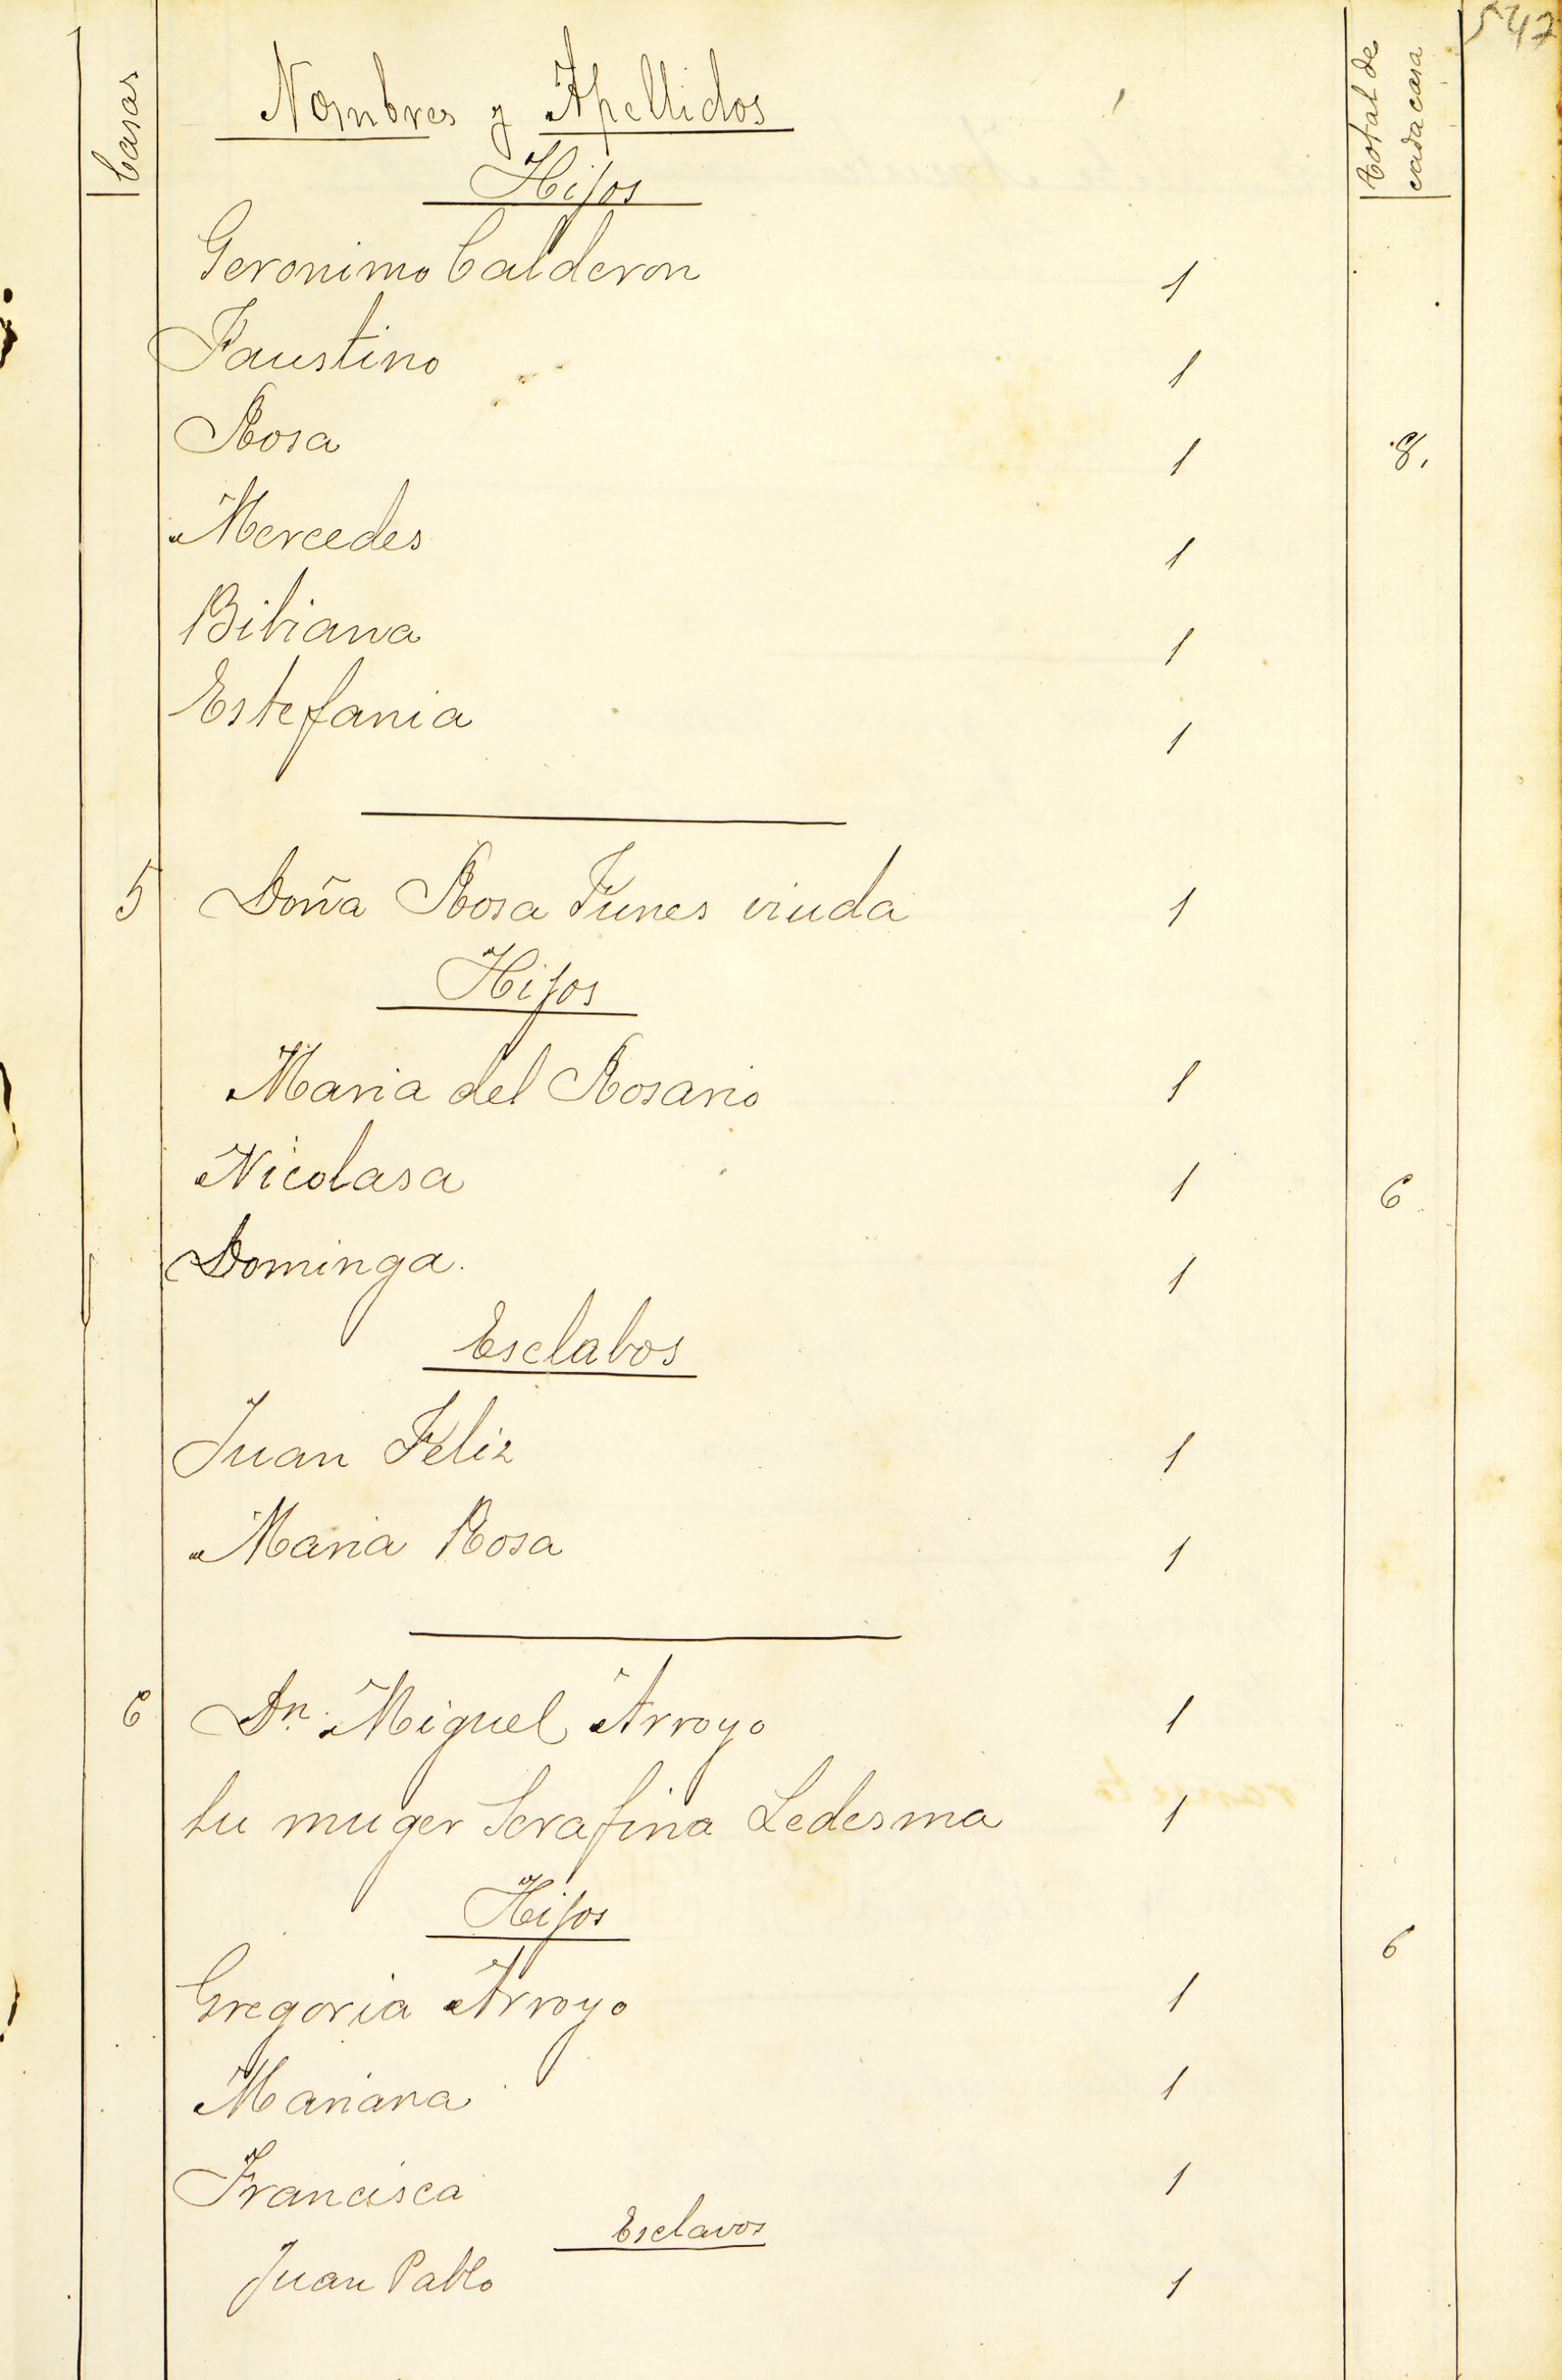 547
Casas
Nombres y Apellidos
Total de
cada casa
Hijos
Geronimo Calderon 1
Faustino 1
Rosa 1 8.
Mercedes 1
Bibiana 1
Estefania 1
5 Doña Rosa Funes viuda 1
Hijos
Maria del Rosario 1
Nicolasa 1 6
Dominga. 1
Esclabos
Juan Feliz 1
Maria Rosa 1
6 Dn. Miguel Arroyo 1
su muger Serafina Ledesma 1
Hijos
6
Gregoria Arroyo 1
Mariana 1
Francisca 1
Esclavos
Juan Pablo 1